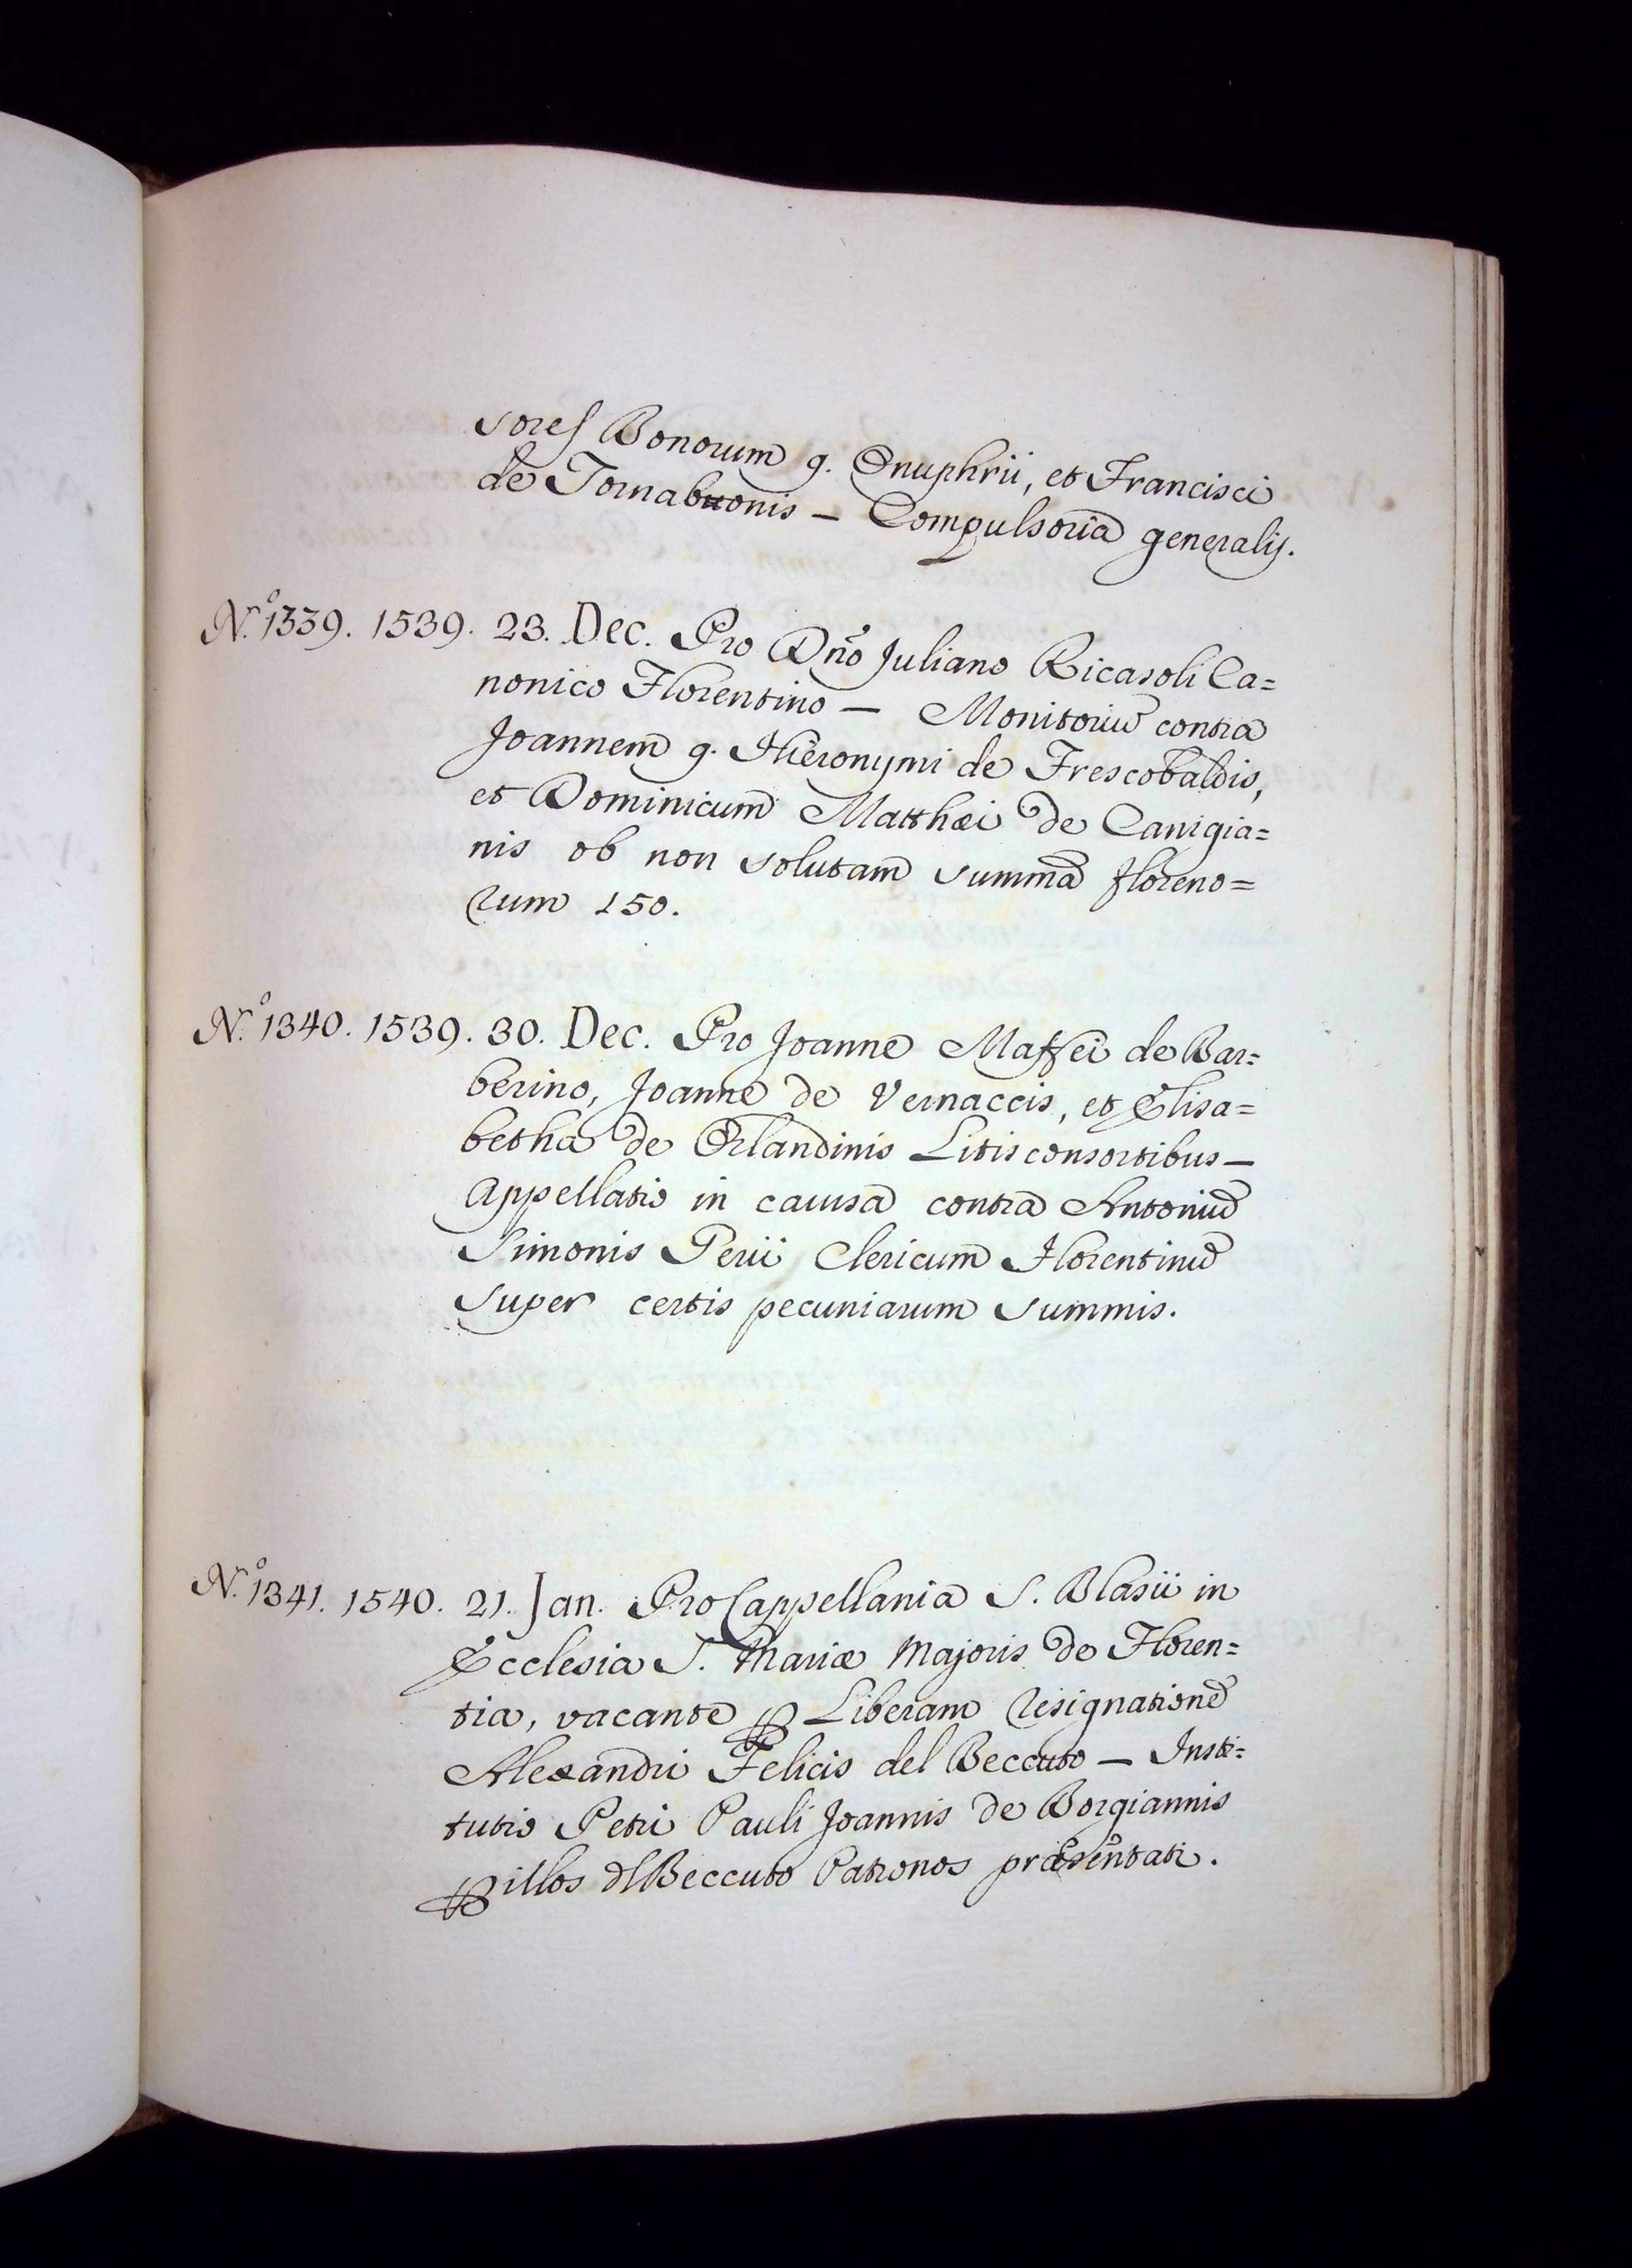 sores Bonorum q. Onuphrii, et Francisci
de Tornabuonis – Compulsoria generalis.
N.º 1339. 1539. 23. Dec. Pro Dño Juliano Ricasoli Ca=
nonico Florentino – Monitoriũ contra
Joannem q. Hieronymi de Frescobaldis,
et Dominicum Matthæi de Canigia=
nis ob non solutam summã floreno=
rum 150.
N.º 1340. 1539. 30. Dec. Pro Joanne Maffei de Bar=
berino, Joanne de Vernaccis, et Elisa=
betha de Orlandinis Litisconsortibus –
Appellatio in causa contra Antoniũ
Simonis Perii Clericum Florentinũ
super certis pecuniarum summis.
N.º 1341. 1540. 21. Jan. Pro Cappellania S. Blasii in
Ecclesia S. Mariæ Majoris de Floren=
tia, vacante ꝑ Liberam resignationẽ
Alexandri Felicis del Beccuto – Insti=
tutio Petri Pauli Joannis de Borgiannis
ꝑ illos dl Beccuto Patronos præsentati.